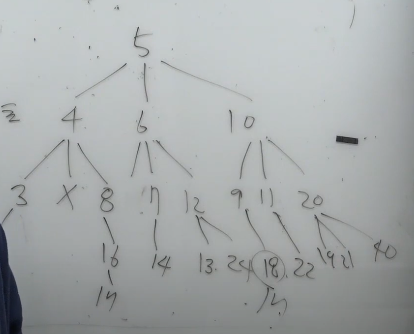 5
4 6 10
3 X 8 7 12 9 11 20
16 14 13 24 18 22 19 21 40
17 17